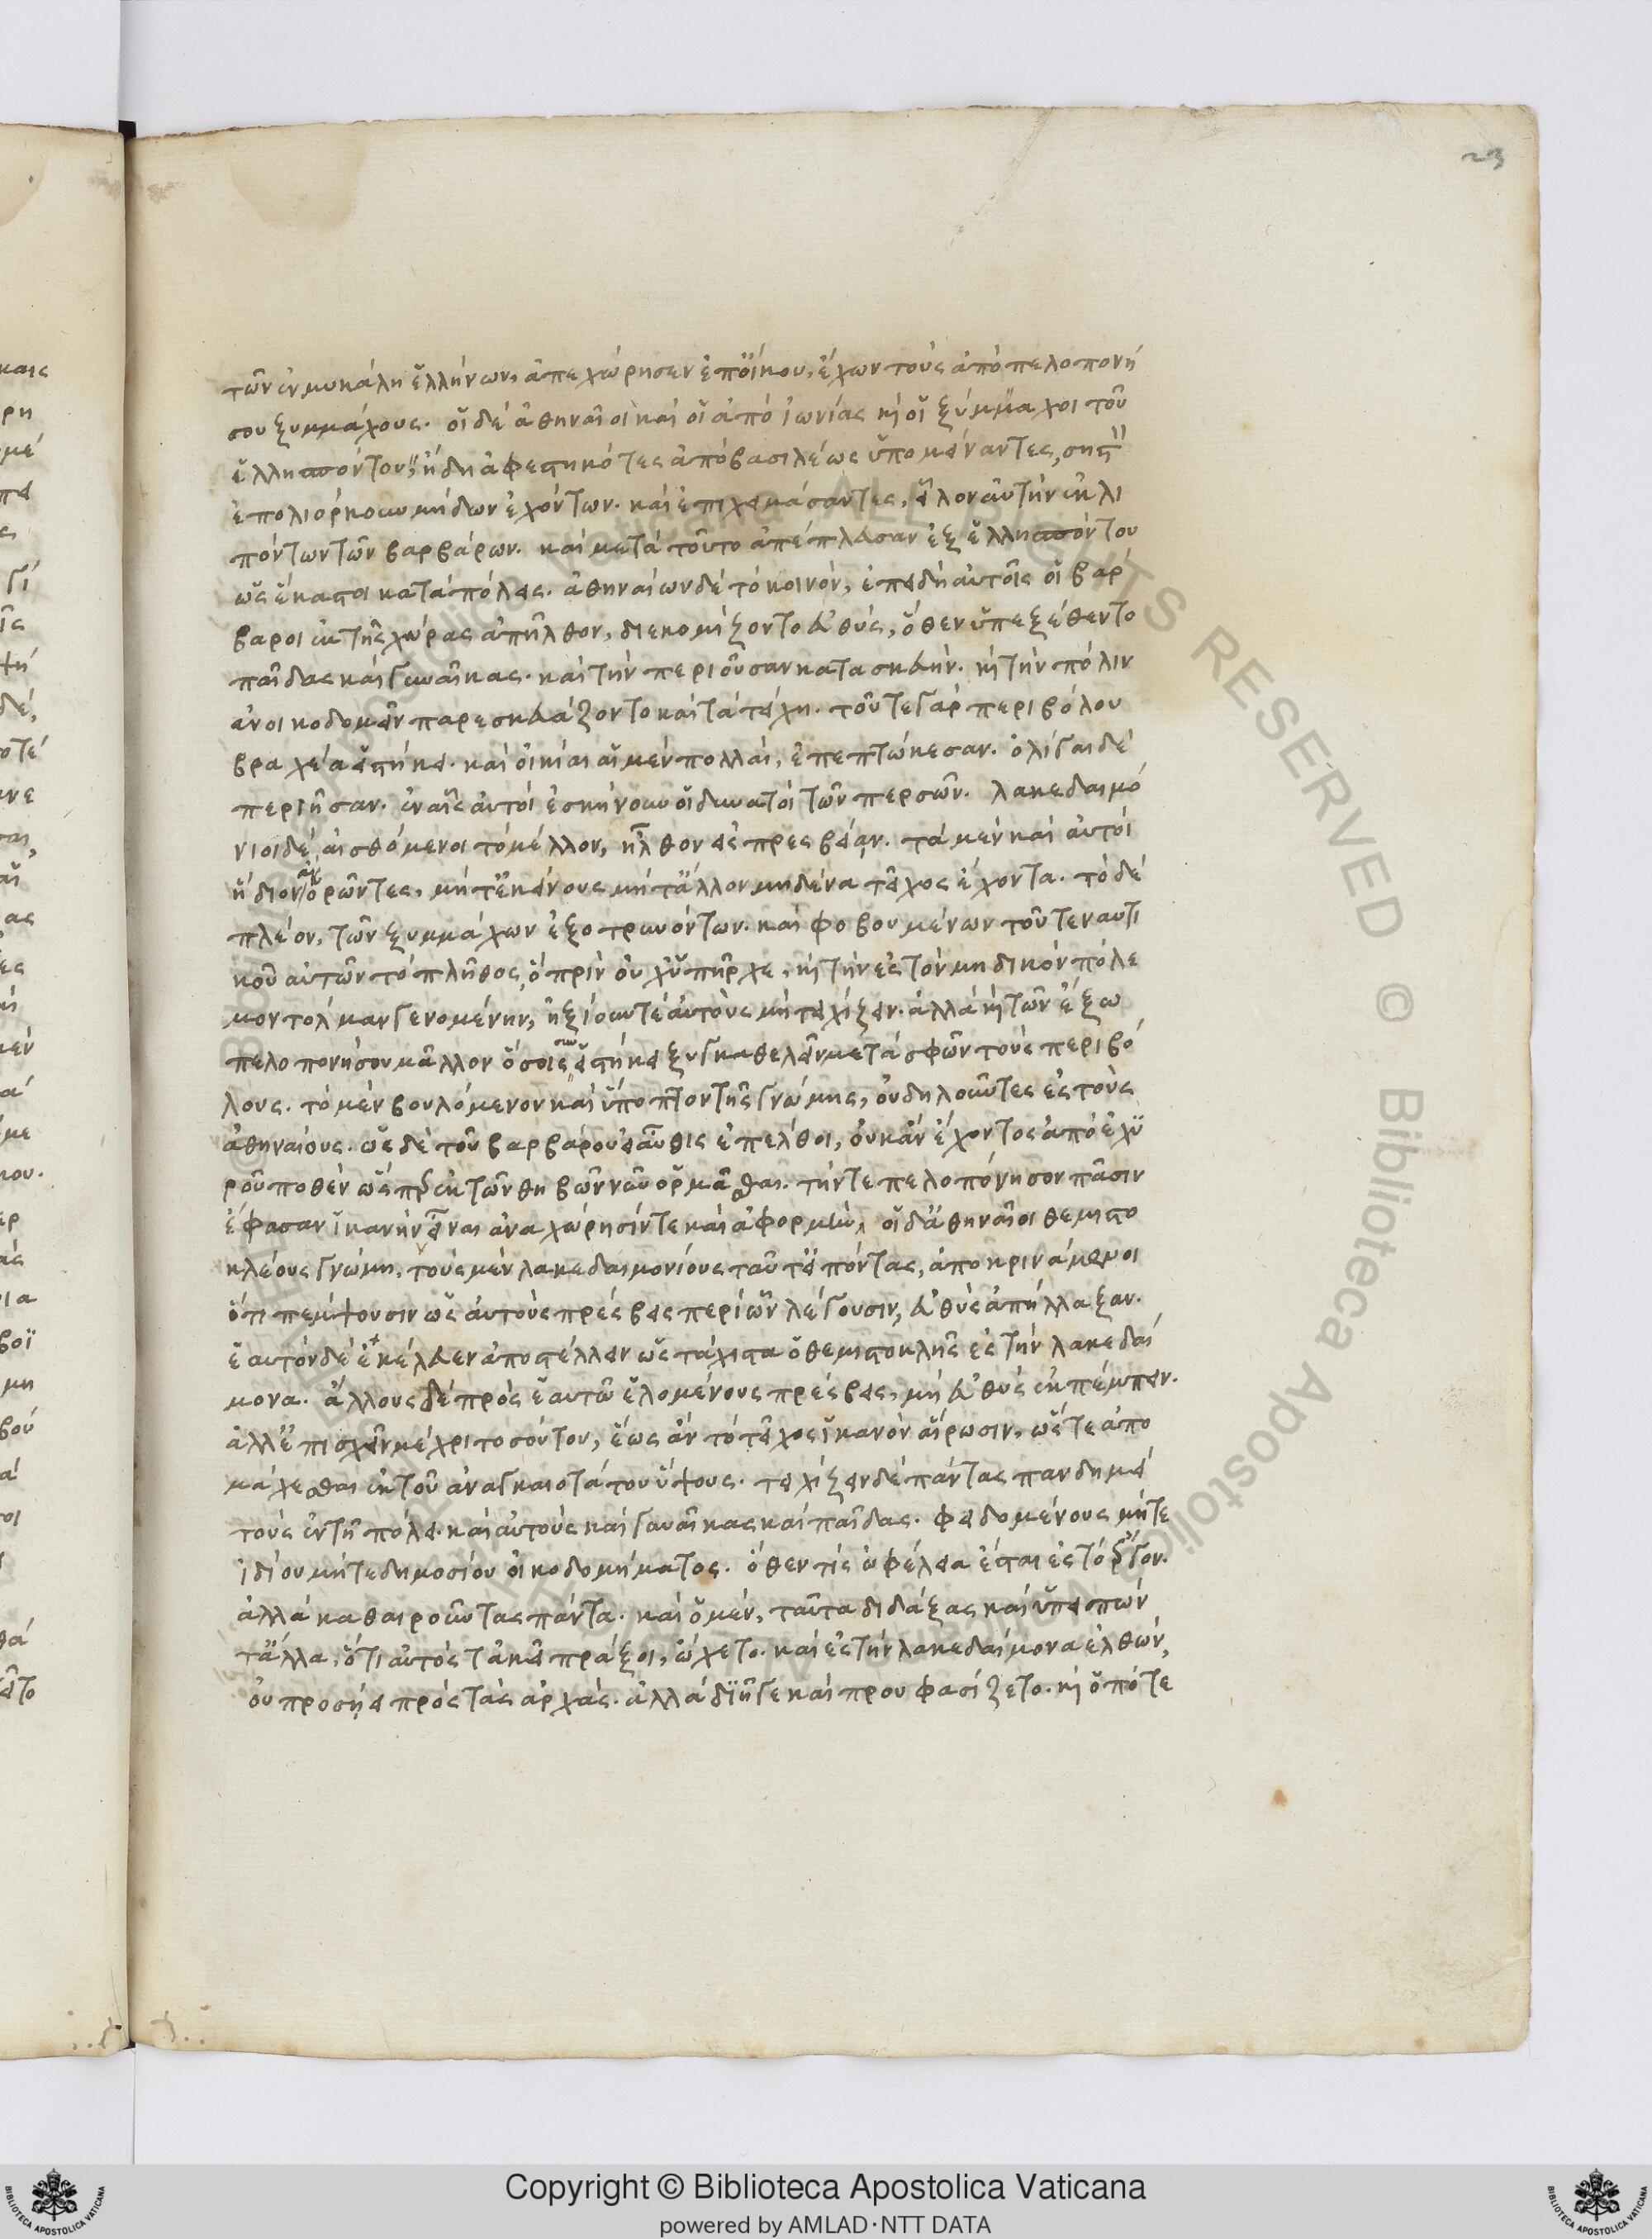 23
τῶν ἐν μυκάλη ἑλλήνων, ἀπεχώρησεν ἐπ' οἴκου, ἔχων τοὺς ἀπὸ πελοπονή
σου ξυμμάχους. οἱ δὲ ἀθηναῖοι καὶ οἱ ἀπὸ ἰωνίας κὶ οἱ ξύμμαχοι τοῦ
ἑλλησπόντου, ἤδη ἀφεστηκότες ἀπὸ βασιλέως ὑπομείναντες, σηστ
ἐπολιόρκουν μήδων ἐχόντων. καὶ ἐπιχειμάσαντες, εἷλον αὐτὴν ἐκλι
πόντων τῶν βαρβάρων. καὶ μετὰ τοῦτο ἀπέπλευσαν ἐξ ἑλλησπόντου
ὡς ἕκαστοι κατὰ πόλεις. ἀθηναίων δὲ τὸ κοινὸν, ἐπειδὴ αὐτοῖς οἱ βάρ
βαροι ἐκ τῆς χώρας ἀπῆλθον, διεκομίζοντο εὐθὺς, ὅθεν ὑπεξέθεντο
παῖδας καὶ γυναῖκας. καὶ τὴν περιοῦσαν κατασκευήν. κὶ τὴν πόλιν
ἀνοικοδομεῖν παρεσκευάζοντο καὶ τὰ τείχη. τοῦ τε γὰρ περιβόλου
βραχέα εἱστήκει. καὶ οἰκίαι αἱ μὲν πολλαὶ, ἐπεπτώκεσαν. ὀλίγαι δὲ
περιῆσαν. ἐν αἷς αὐτοὶ ἐσκήνουν οἱ δυνατοὶ τῶν περσῶν. λακεδαιμό
νιοι δὲ αἰσθόμενοι τὸ μέλλον, ἦλθον εἰς πρεσβείαν. τὰ μὲν καὶ αὐτοὶ
ἥδιον ἂν ὁρῶντες, μήτ' ἐκείνους μήτ' ἄλλον μηδένα τεῖχος ἔχοντα. τὸ δὲ
πλέον, τῶν ξυμμάχων ἐξοτρυνόντων. καὶ φοβουμένων τοῦ τε ναυτι
κοῦ αὐτῶν τὸ πλῆθος, ὃ πρὶν οὐχ ὑπῆρχε, κὶ τὴν ἐς τὸν μηδικὸν πόλε
μον τολμαν γενομένην, ἠξίουν τὲ αὐτοὺς μὴ τειχίζειν. ἀλλὰ κὶ τῶν ἔξω
πελοπονήσου μᾶλλον ὅσοις εἱστήκει ξυγκαθελεῖν μετὰ σφῶν τοὺς περιβό
λους. τὸ μὲν βουλόμενον καὶ ὕποπτον τῆς γνώμης, οὐ δηλοῦντες ἐς τοὺς
ἀθηναίους. ὡς δὲ τοῦ βαρβάρου εἰ αὖθις ἐπέλθοι, οὐκ ἂν ἔχοντος ἀπὸ ἐχυ
ροῦ ποθὲν ὥσπερ ἐκ τῶν θηβῶν νῦν ὁρμᾶσθαι. τήν τε πελοπόνησον πᾶσιν
ἔφασαν ἱκανὴν εἶναι ἀναχώρησίν τε καὶ ἀφορμὴν, οἱ δ' ἀθηναῖοι θεμιστο
κλέους γνώμη, τοὺς μὲν λακεδαιμονίους ταῦτ' εἰπόντας, ἀποκρινάμενοι
ὅτι πέμψουσιν ὡς αὐτοὺς πρέσβεις περὶ ὧν λέγουσιν, εὐθὺς ἀπήλλαξαν.
ἑαυτὸν δὲ ἐκέλευεν ἀποστέλλειν ὡς τάχιστα ὁ θεμιστοκλῆς ἐς τὴν λακεδαί
μονα. ἄλλους δὲ πρὸς ἑαυτῶ ἑλομένους πρέσβεις, μὴ εὐθὺς ἐκπέμπειν.
ἀλλ' ἐπισχεῖν μέχρι τοσούτου, ἕως ἂν τὸ τεῖχος ἱκανὸν αἴρωσιν, ὥστε ἀπο
μάχεσθαι ἐκ τοῦ ἀναγκαιοτάτου ὕψους. τειχίζειν δὲ πάντας πανδημεὶ
τοὺς ἐν τῆ πόλει. καὶ αὐτοὺς καὶ γυναῖκας καὶ παῖδας. φειδομένους μήτε
ἰδίου μήτε δημοσίου οἰκοδομήματος. ὅθεν τίς ὠφέλεια ἔσται ἐς τὸ ἔργον.
ἀλλὰ καθαιροῦντας πάντα. καὶ ὁ μὲν, ταῦτα διδάξας καὶ ὑπειπὼν
τἄλλα, ὅτι αὐτὸς τἀκεῖ πράξοι, ὤχετο. καὶ ἐς τὴν λακεδαίμονα ἐλθὼν,
οὐ προσήει πρὸς τὰς ἀρχὰς. ἀλλὰ διῆγε καὶ προυφασίζετο. κὶ ὁπότε
Copyright © Biblioteca Apostolica Vaticana
powered by AMLAD·NTT DATA